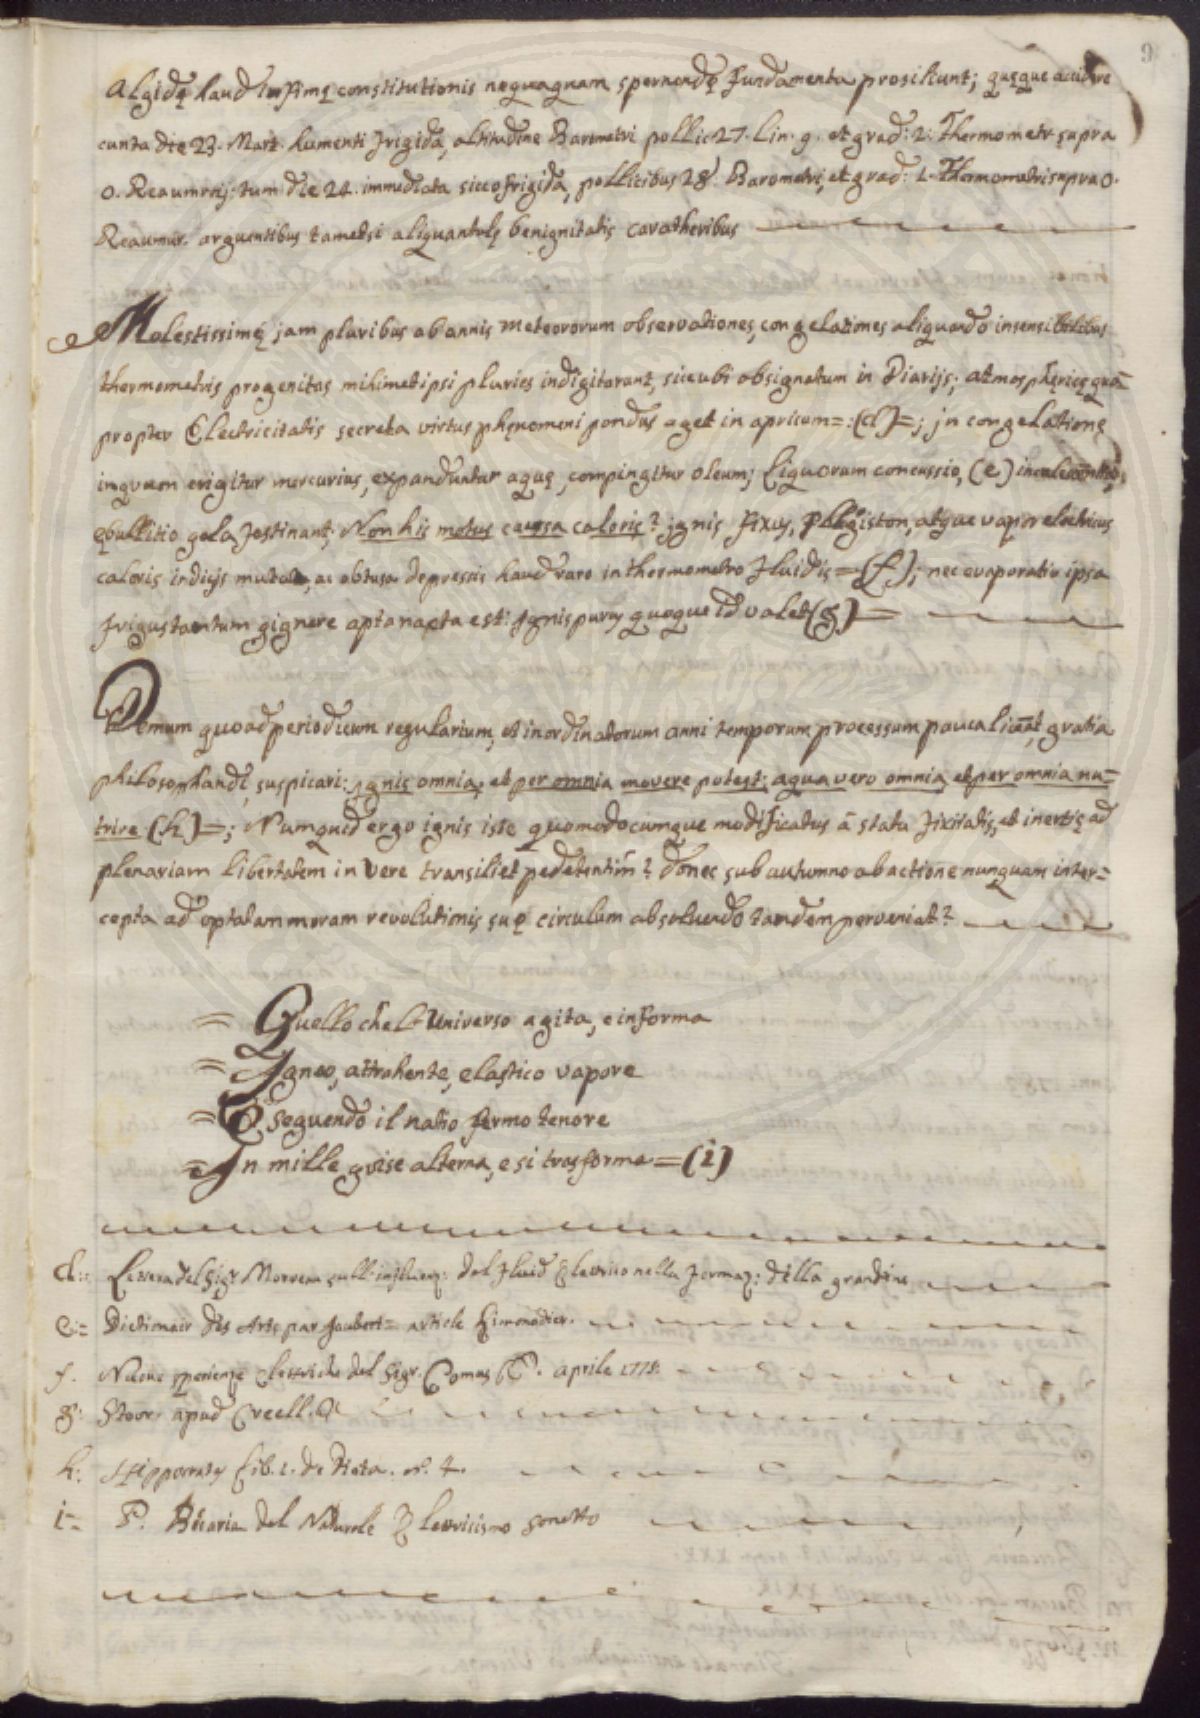 9
Algidę haud infimę constitutionis nequaquam spernendę fundamenta prosiliunt; quęque accidere
cuncta die 23. Mart. humenti frigida, altitudine Barometri pollic. 27. lin. 9. et grad: 2. Thermometr. supra
0. Reaumrij: tum die 24. immediata sicco frigida, pollicibus 28. Barometri, et grad: 1. Thermometri supra 0.
Reaumur. arguentibus tametsi aliquantulę benignitatis caratheribus
Molestissimę jam pluribus ab annis meteororum observationes, congelationes aliquando insensibilibus
thermometris progenitas mihimetipsi pluries indigitarant, sicubi obsignatum in Diarijs; atmosphęricę qua=
propter Electricitatis secreta virtus phęnomeni pondus aget in apricum=:(d)=; jn congelatione
imquem erigitur mercurius, expanduntur aquę, compingitur oleum; Liquorum concussio, (e)
ębullitio gelu festinant; Non his motus causa caloris? jgnis fixus, phlogiston, atque vapor electricus
caloris indicijs mutatis, ac obtusa depressis haud raro in thermometro fluidis=(f); nec evaporatio ipsa
frigus tantum gignere apta nacta est: Jgnis purus quoque id valet(g)=
Demum quoad periodicum regularium, et inordinatorum anni temporum processum pauca liceat gratia
philosophandi suspicari: jgnis omnia, et per omnia movere potest; aqua vero omnia, et per omnia nu=
trire (h)=; Numquid ergo ignis iste quomodocumque modificatus ā statu fixitatis, et inertię ad
plenariam libertatem in vere transiliet pedetentim? donec sub autumno ab actione nunquam inter=
cepta ad optatam moram revolutionis suę circulum absolvendo tandem perveniat?
= Quello che l'Universo agita, e informa
= Jgneo, attrahente, elastico vapore
= E seguendo il natio fermo tenore
= Jn mille guise alterna, e si trasforma=(i)
d:= Lettera del Sigr. Morveau sull'influenz: del fluid Elettrico nella formaz: della grandine
e:= Dictionair des Arts par Jaubert= article Limonadier.
f. Nuove sperienze elettriche del Sigr. Comus P. aprile 1778.
g: Stoor. apud Creell.
h: Hippocrates Lib. 1. de Dieta. n°. 4.
i= P. Becaria del Naturale Elettricismo sonetto